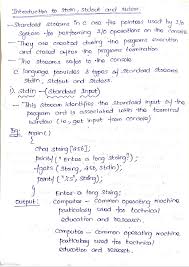 Introduction to Stdin, stdout and stderr
- Standard streams in C are file pointers used by I/O
System for performing I/O operations on the console
- They are created during the programs execution
and closed after the programs execution
- The standard streams
C language provides 3 types of standard streams
Stdin, Stdout and stderr.
1). Stdin - (Standard Input)
- This stream identifies the standard input of the
program and is associated with the terminal
window (i.e, get input from console)
Eg: main()
{
char string[256];
printf("Enter a long string");
fgets(string, 256, stdin);
printf("%s", string);
}
Output: Enter a long string;
computer - Common operating machine
particularly used for technical
education and research;
computer - Common operating machine,
particularly used for technical
education and research.